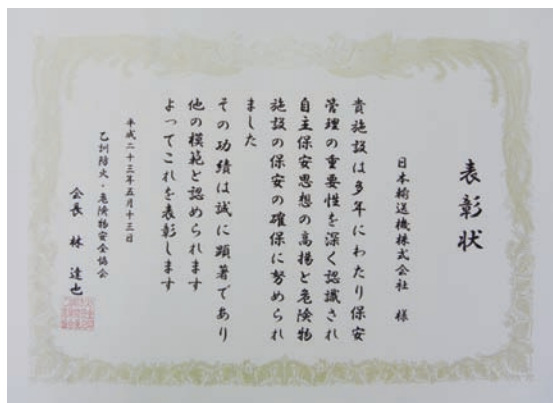 表彰状
日本輸送機株式会社 様
貴施設は多年にわたり保安
管理の重要性を深く認識され
自主保安思想の高揚と危険物
施設の保安の確保に努められ
ました
その功績は誠に顕著であり
他の模範と認められます
よってこれを表彰します
平成二十三年五月十三日
乙訓防火・危険物安全協会
会長 林 達也